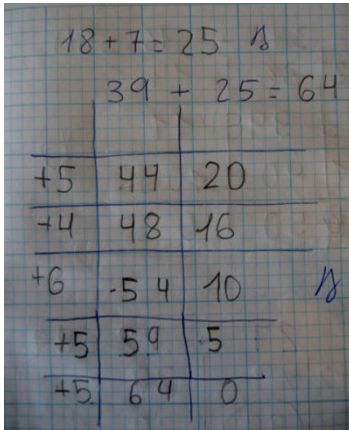 18 + 7 = 25 л
39 + 25 = 64
+5 44 20
+4 48 16
+6 54 10 л
+5 59 5
+5 64 0